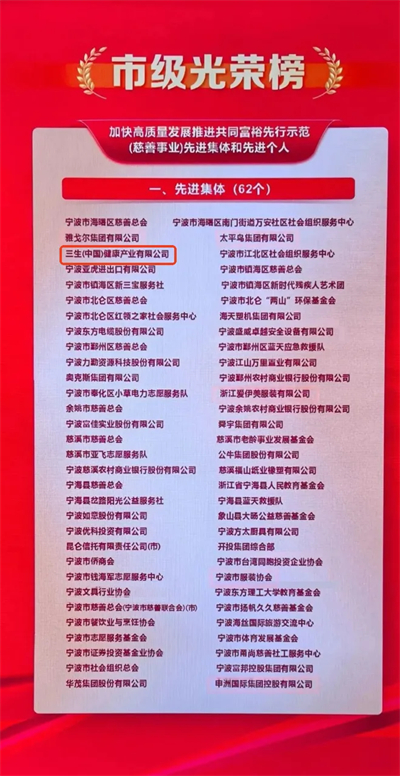 市级光荣榜
加快高质量发展推进共同富裕先行示范
(慈善事业)先进集体和先进个人
一、先进集体(62个)
宁波市海曙区慈善总会 宁波市海曙区南门街道万安社区社会组织服务中心
雅戈尔集团有限公司 太平鸟集团有限公司
三生(中国)健康产业有限公司 宁波市江北区社会组织服务中心
宁波亚虎进出口有限公司 宁波市镇海区慈善总会
宁波市镇海区新三宝服务社 宁波市镇海区新时代残疾人艺术团
宁波市北仑区慈善总会 宁波市北仑“两山”环保基金会
宁波市北仑区红领之家社会服务中心 海天塑机集团有限公司
宁波东方电缆股份有限公司 宁波盛威卓越安全设备有限公司
宁波市鄞州区慈善总会 宁波市鄞州区蓝天应急救援队
宁波力勤资源科技股份有限公司 宁波江山万里置业有限公司
奥克斯集团有限公司 宁波鄞州农村商业银行股份有限公司
宁波市奉化区小草电力志愿服务队 浙江爱伊美服装有限公司
余姚市慈善总会 宁波余姚农村商业银行股份有限公司
宁波富佳实业股份有限公司 舜宇集团有限公司
慈溪市慈善总会 慈溪市老龄事业发展基金会
慈溪市亚飞志愿服务队 公牛集团股份有限公司
宁波慈溪农村商业银行股份有限公司 慈溪福山纸业橡塑有限公司
宁海县慈善总会 浙江省宁海县人民教育基金会
宁海县岔路阳光公益服务社 宁海县蓝天救援队
宁波如意股份有限公司 象山县大旸公益慈善基金会
宁波优科投资有限公司 宁波方太厨具有限公司
昆仑信托有限责任公司(市) 开投集团综合部
宁波市侨商会 宁波市台湾同胞投资企业协会
宁波市钱海军志愿服务中心 宁波市服装协会
宁波文具行业协会 宁波东方理工大学教育基金会
宁波市慈善总会(宁波市慈善联合会)(市) 宁波市扬帆久久慈善基金会
宁波市餐饮业与烹饪协会 宁波海丝国际旅游交流中心
宁波市志愿服务基金会 宁波市体育发展基金会
宁波市证券投资基金业协会 宁波市甬尚慈善社工服务中心
宁波市社会组织总会 宁波富邦控股集团有限公司
华茂集团股份有限公司 申洲国际集团控股有限公司